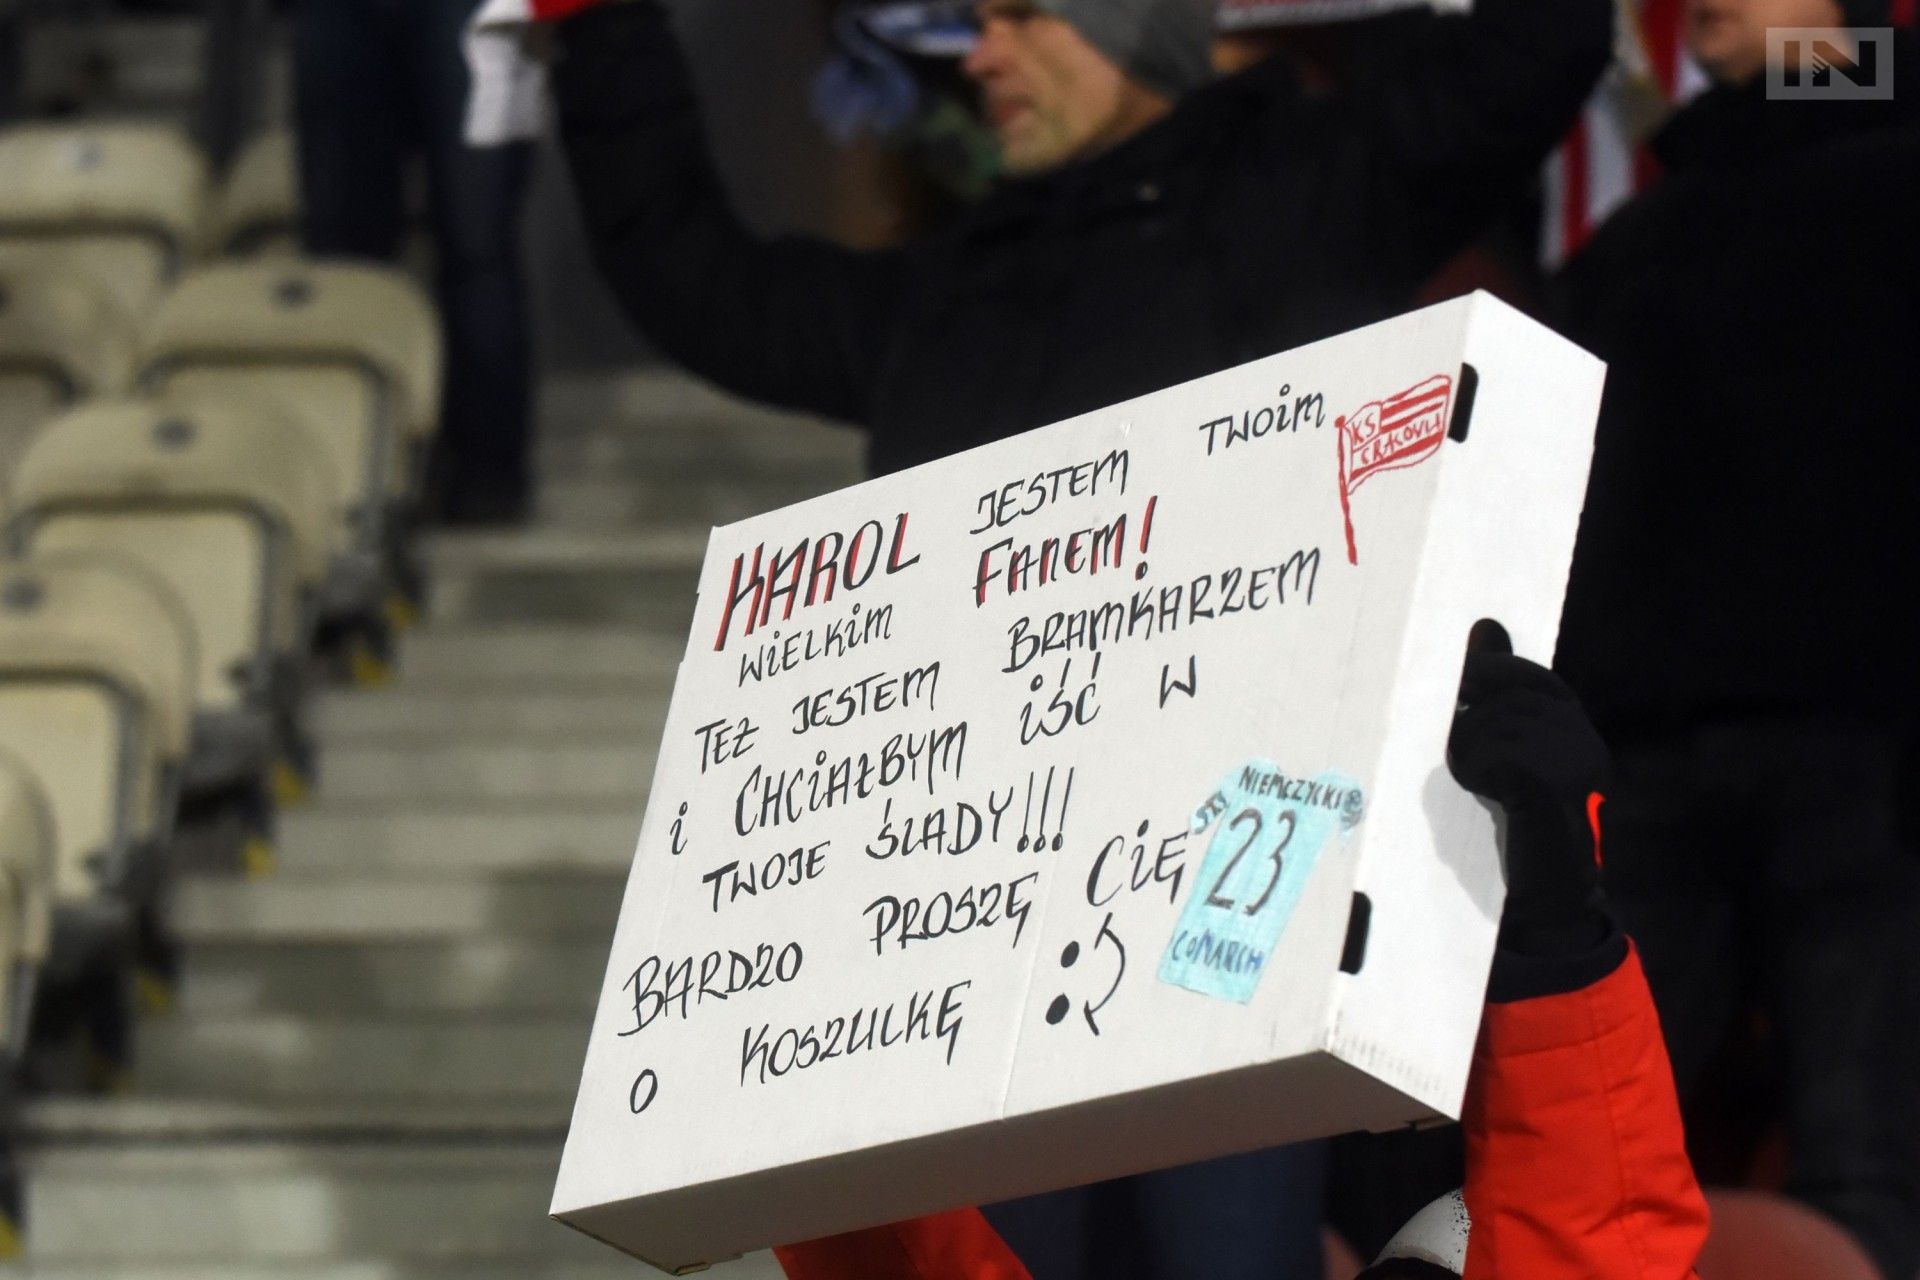 IN
KAROL JESTEM TWOIM
WIELKIM FANEM!
TEŻ JESTEM BRAMKARZEM
i CHCIAŁBYM IŚĆ W
TWOJE ŚLADY!!!
BARDZO PROSZĘ CIĘ
O KOSZULKĘ :)
KS
CRACOVIA
NIEMCZYCKI
23
COMARCH